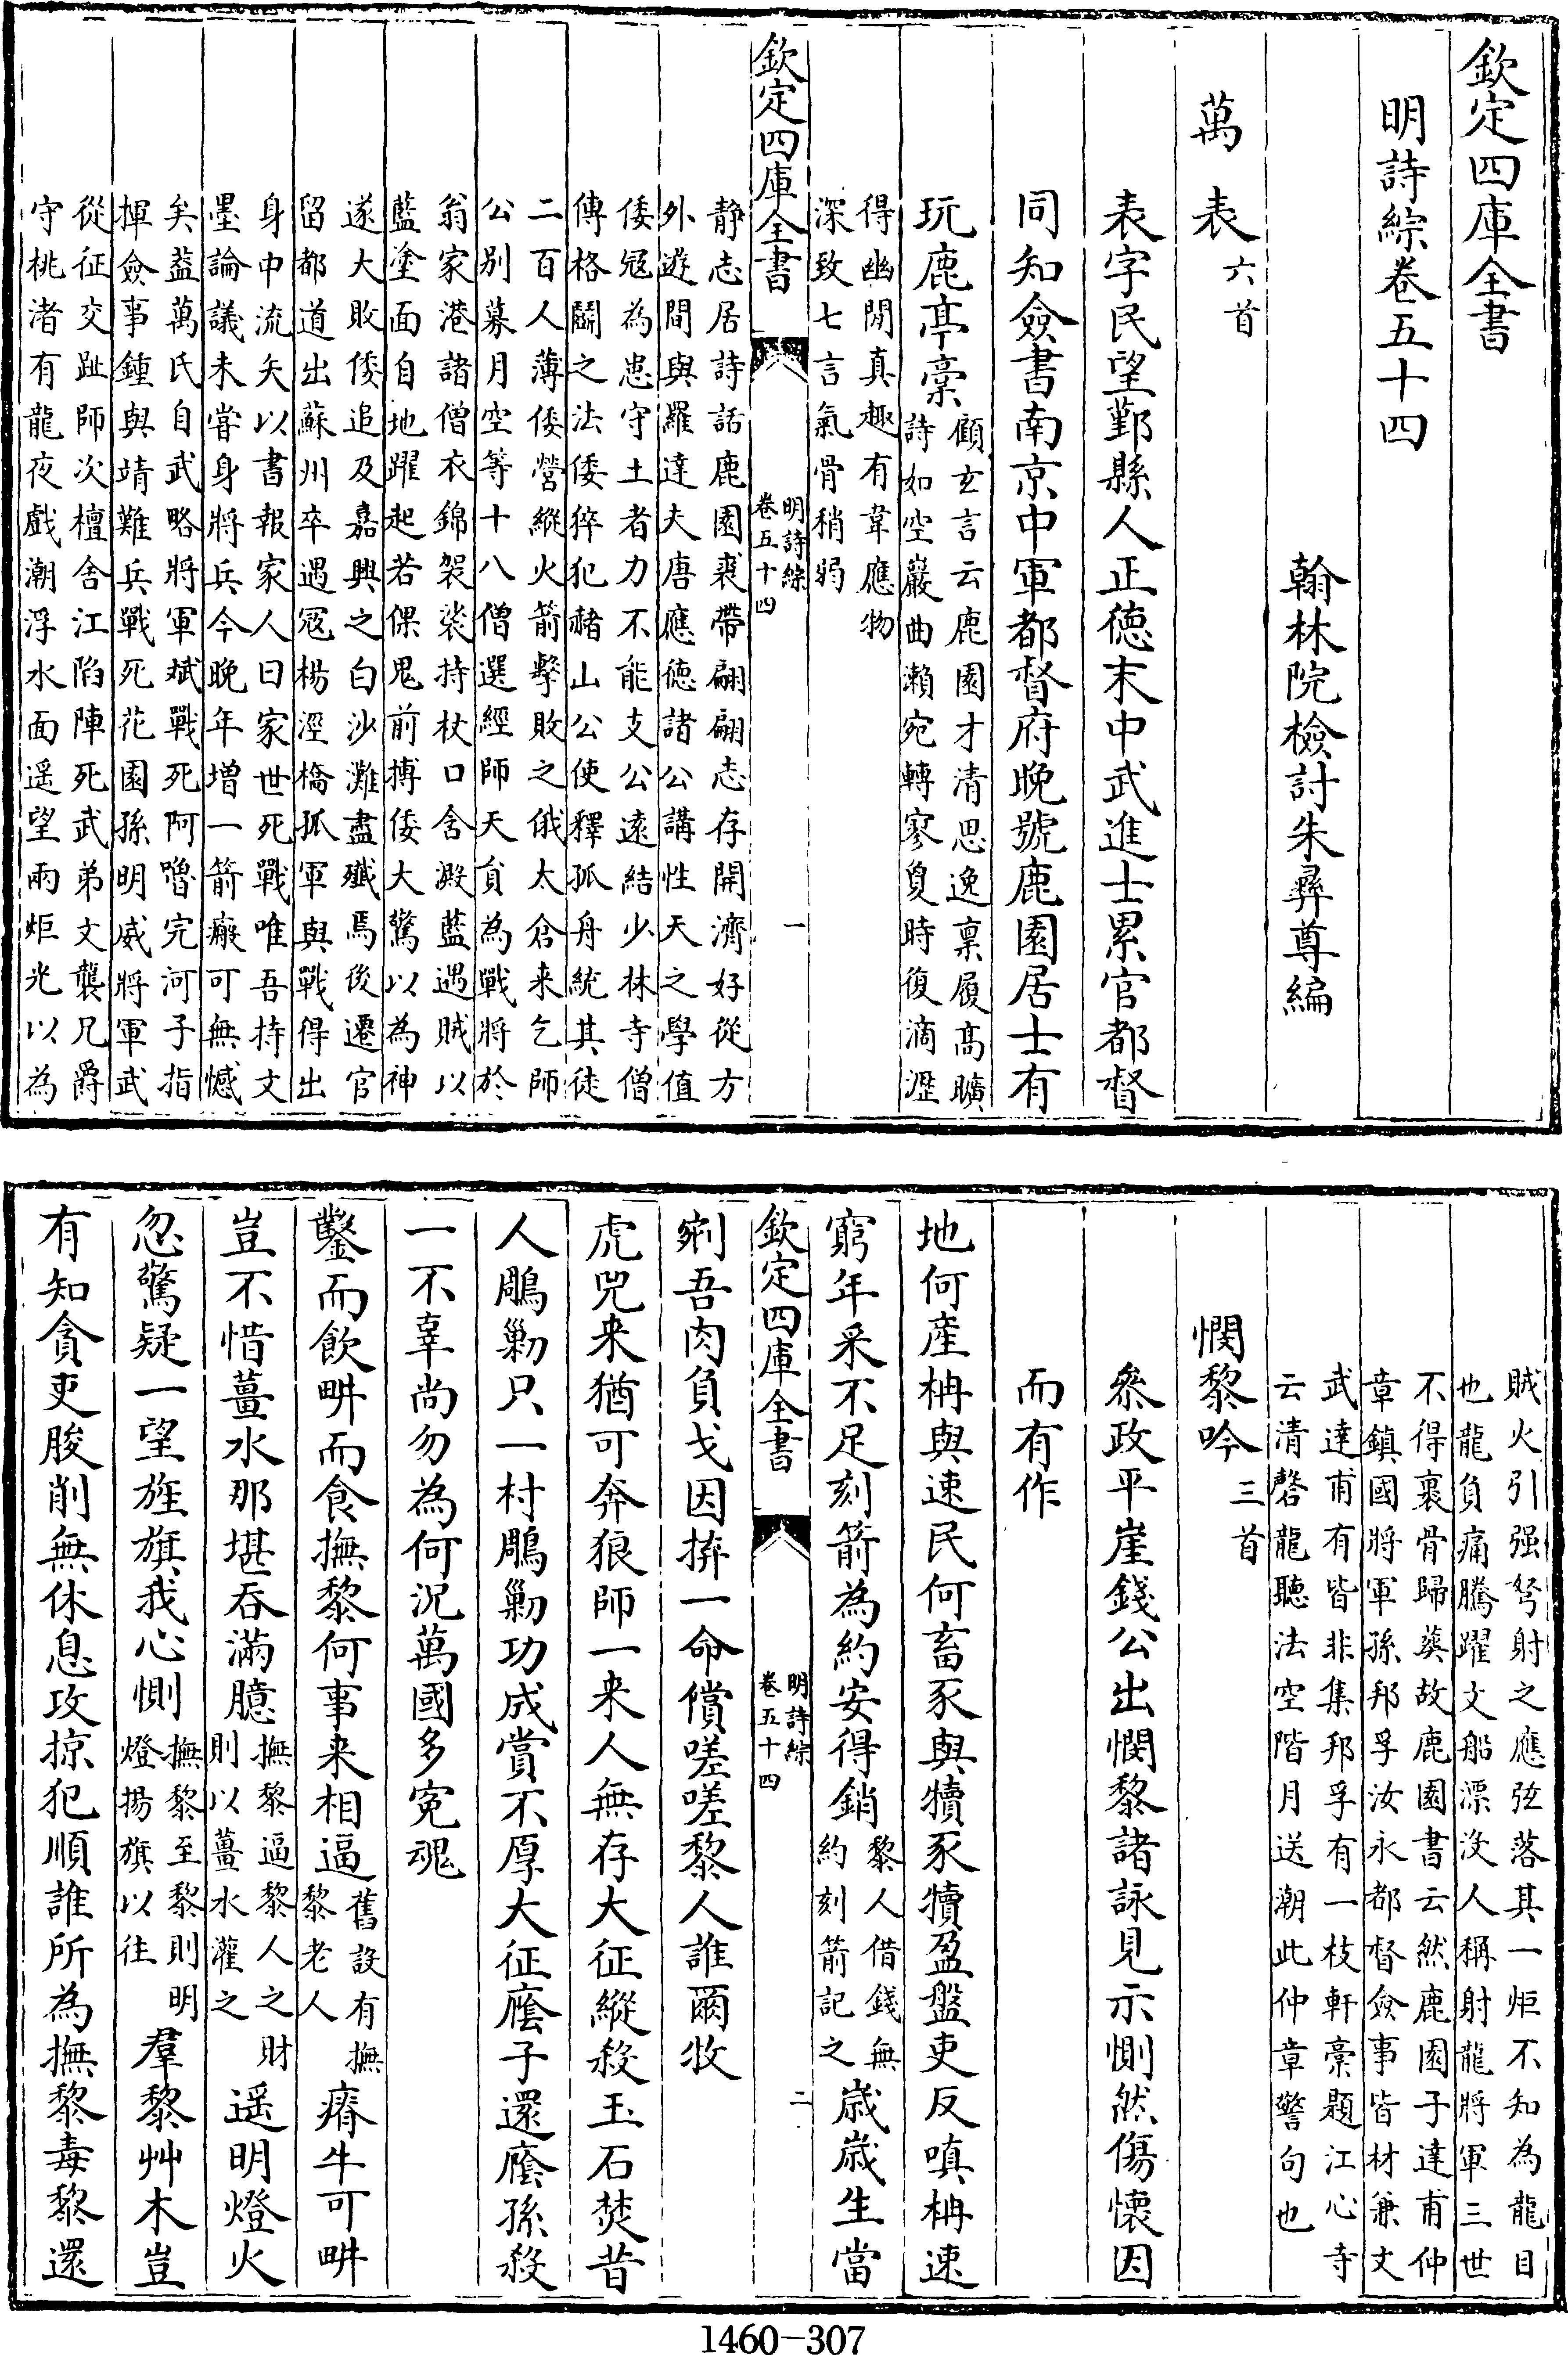 欽定四庫全書
明詩綜卷五十四
翰林院檢討朱彞尊編
萬表六首
表字民望鄞縣人正德末中武進士累官都督
同知僉書南京中軍都督府晚號鹿園居士有
玩鹿亭稾
顧玄言云鹿園才清思逸稟履高曠
詩如空巖曲瀨宛轉寥夐時復滴瀝
得幽閒真趣有韋應物
深致七言氣骨稍弱
欽定四庫全書
明詩綜
卷五十四
一
静志居詩話鹿園裘帶翩翩志存開濟好從方
外遊間與羅達夫唐應德諸公講性天之學值
倭冦為患守土者力不能支公遠結少林寺僧
傳格鬭之法倭猝犯赭山公使釋孤舟統其徒
二百人薄倭營縱火箭擊敗之俄太倉来乞師
公别募月空等十八僧選經師天負為戰將於
翁家港諸僧衣錦袈裟持杖口含澱藍遇賊以
藍塗面自地躍起若倮鬼前搏倭大驚以為神
遂大敗倭追及嘉興之白沙灘盡殲焉後遷官
留都道出蘇州卒遇冦楊涇橋孤軍與戰得出
身中流矢以書報家人曰家世死戰唯吾持文
墨論議未嘗身將兵今晚年增一箭瘢可無憾
矣葢萬氏自武略將軍斌戰死阿嚕完河子指
揮僉事鍾與靖難兵戰死花園孫明威將軍武
從征交趾師次檀舍江陷陣死武弟文襲兄爵
守桃渚有龍夜戲潮浮水面遥望兩炬光以為
賊火引强弩射之應弦落其一炬不知為龍目
也龍負痛騰躍文船漂沒人稱射龍將軍三世
不得裹骨歸葬故鹿園書云然鹿園子達甫仲
章鎮國將軍孫邦孚汝永都督僉事皆材兼文
武達甫有皆非集邦孚有一枝軒稾題江心寺
云清磬龍聽法空階月送潮此仲章警句也
憫黎吟三首
叅政平崖錢公出憫黎諸詠見示惻然傷懷因
而有作
地何産柟與速民何畜豕與犢豕犢盈盤吏反嗔柟速
窮年采不足刻箭為約安得銷
黎人借錢無
約刻箭記之
歲歲生當
欽定四庫全書
明詩綜
卷五十四
二
剜吾肉負戈因拚一命償嗟嗟黎人誰爾牧
虎兕来猶可奔狼師一来人無存大征縱殺玉石焚昔
人鵰勦只一村鵰勦功成賞不厚大征廕子還廕孫殺
一不辜尚勿為何況萬國多寃魂
鑿而飲畊而食撫黎何事来相逼
舊設有撫
黎老人
瘠牛可畊
豈不惜薑水那堪吞滿臆
撫黎逼黎人之財
則以薑水灌之
遥明燈火
忽驚疑一望旌旗我心惻
撫黎至黎則明
燈揚旗以往
羣黎艸木豈
有知貪吏朘削無休息攻掠犯順誰所為撫黎毒黎還
1460-307